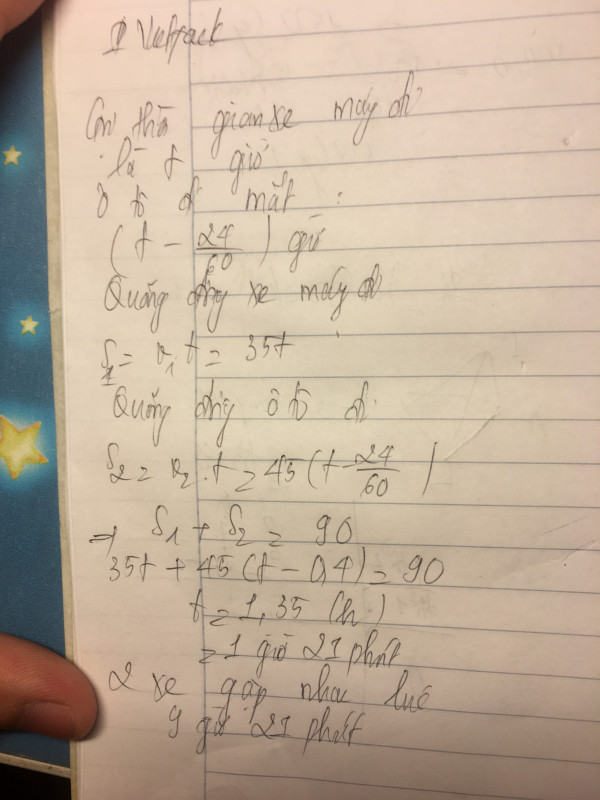 Gọi thời gian xe máy đi
là t giờ
ô tô đi mất :
(t - 24/60) giờ
Quãng đường xe máy đi
S1 = v1 t = 35t
Quãng đường ô tô đi
S2 = v2 . t = 45(t - 24/60)
=> S1 + S2 = 90
35t + 45(t - 0,4) = 90
t = 1,35 (h)
= 1 giờ 21 phút
2 xe gặp nhau lúc
9 giờ 21 phút